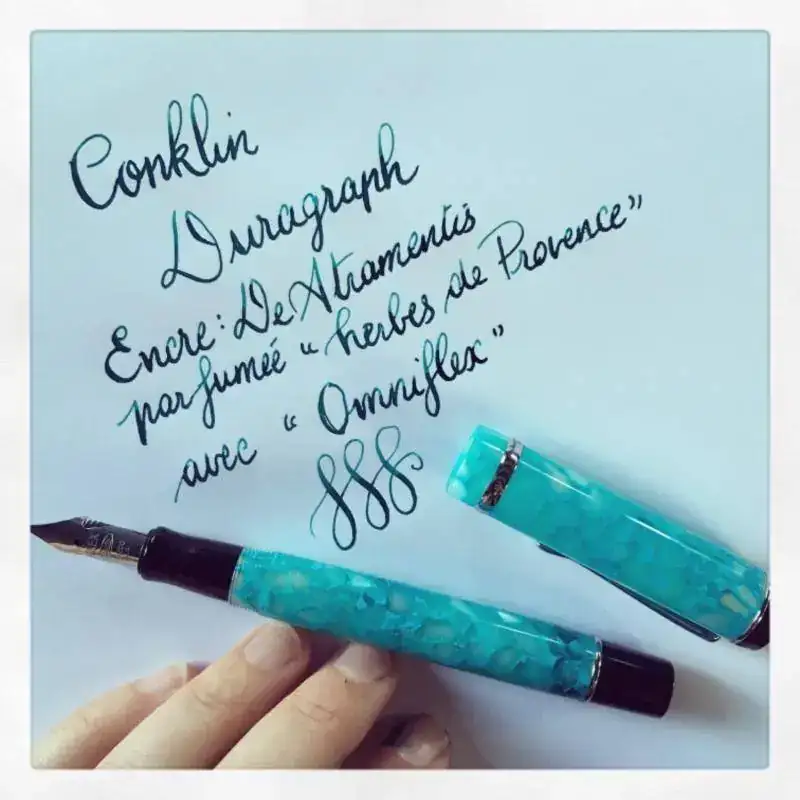 Conklin
Duragraph
Encre: De Atramentis
parfumée "herbes de Provence"
avec "Omniflex"